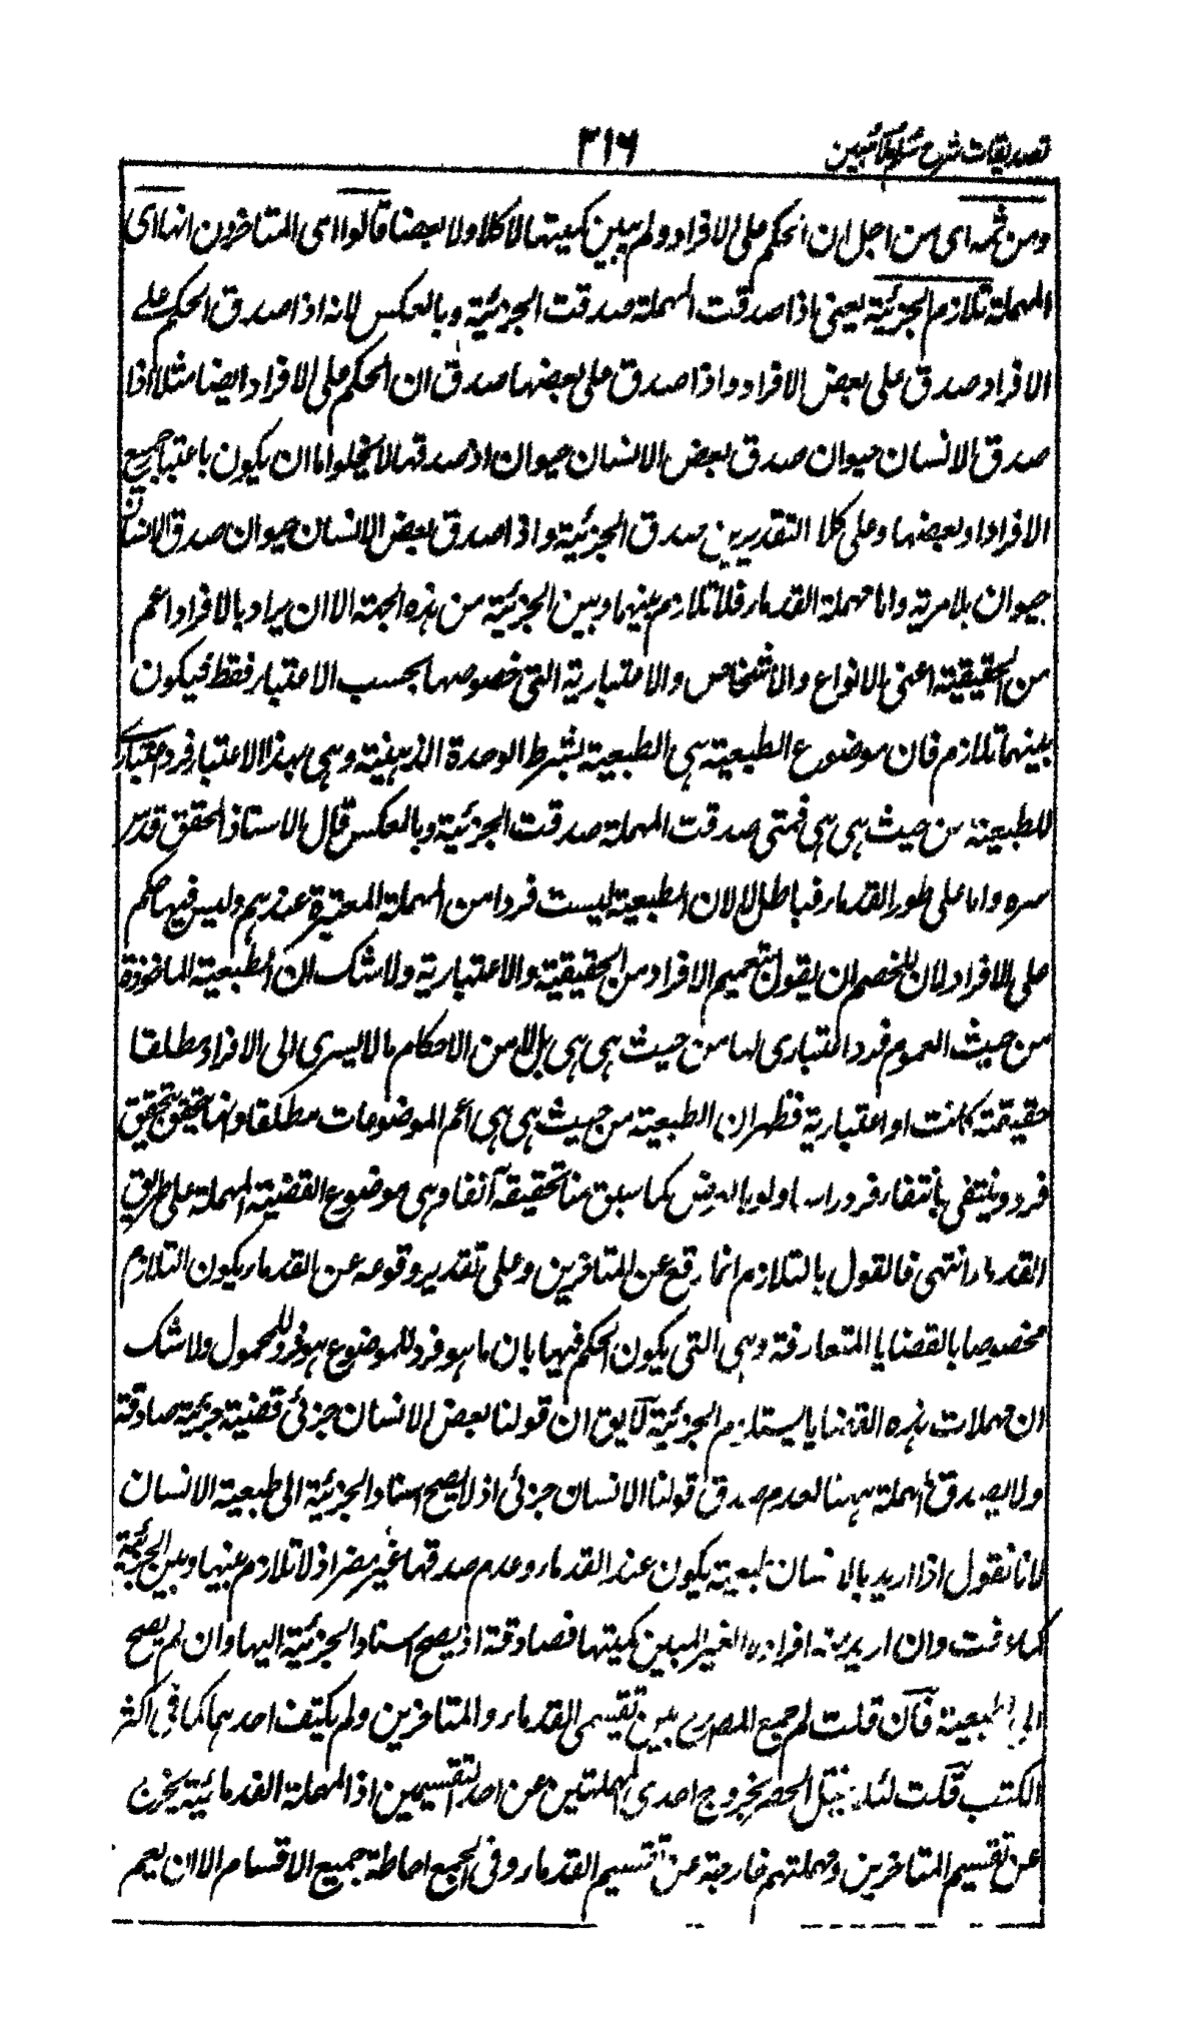 تصديقات شرح سلم ملا مبين
٣١٦
ومن ثمه اى من اجل ان الحكم على الافراد ولم يبين كميتها لا كلا ولا بعضا قالوا اى المتاخرون انها اى
المهملة تلازم الجزئية يعنى اذا صدقت المهملة صدقت الجزئية وبالعكس لانه اذا صدق الحكم على
الافراد صدق على بعض الافراد واذا صدق على بعضها صدق ان الحكم على الافراد ايضا مثلا اذا
صدق الانسان حيوان صدق بعض الانسان حيوان اذ صدقها لا يخلوا ما ان يكون باعتبار جميع
الافراد او بعضها وعلى كلا التقديرين صدق الجزئية واذا صدق بعض الانسان حيوان صدق الانسان
حيوان بلا مرية واما مهملة القدماء فلا تلازم بينهما وبين الجزئية من هذه الجهة الا ان يراد بالافراد اعم
من الحقيقية اعنى الانواع والاشخاص والاعتبارية التى خصوصها بحسب الاعتبار فقط فيكون
بينهما تلازم فان موضوع الطبعية هى الطبعية بشرط الوحدة الذهنية وهى بهذا الاعتبار فرد اعتبارى
للطبيعة من حيث هى هى فمتى صدقت المهملة صدقت الجزئية وبالعكس قال الاستاذ المحقق قدس
سره واما على طور القدماء فباطل لا لان الطبعية ليست فردا من المهملة المعتبرة عندهم وليس فيها حكم
على الافراد لان للخصم ان يقول بتعميم الافراد من الحقيقية والاعتبارية ولا شك ان الطبعية الماخوذة
من حيث العموم فرد اعتبارى لها من حيث هى هى بل لان من الاحكام ما لا يسرى الى الافراد مطلقا
حقيقة كانت او اعتبارية فظهر ان الطبعية من حيث هى هى اعم الموضوعات مطلقا وانها تتحقق بتحقيق
فرد وينتفى بانتفاء فرد اولو بالعرض كما سبق منا تحقيقه آنفا وهى موضوع القضية المهملة على طريق
القدماء انتهى فالقول بالتلازم انما وقع عن المتاخرين وعلى تقدير وقوعه عن القدماء يكون التلازم
مخصوصا بالقضايا المتعارفة وهى التى يكون الحكم فيها بان ما هو فرد للموضوع هو فرد للمحمول ولا شك
ان مهملات هذه القضايا يستلزم الجزئية لا يق ان قولنا بعض الانسان جزئى قضية جزئية صادقة
ولا يصدق المهملة ههنا لعدم صدق قولنا الانسان جزئى اذ لا يصح اسناد الجزئية الى طبعية الانسان
لانا نقول اذا اريد بالانسان طبعية يكون عند القدماء وعدم صدقها غير مضر اذ لا تلازم بينها وبين الجزئية
كما عرفت وان اريد منه افراده الغير المبين كميتها فصادقة اذ يصح اسناد الجزئية اليها وان لم يصح
الى الطبعية فان قلت لم جمع المصنف بين تقسيمى القدماء والمتاخرين ولم يكتف احدهما كما فى اكثر
الكتب قلت لئلا يختل الحصر بخروج احدى المهملتين عن احد التقسيمين اذ المهملة القدمائية يخرج
عن تقسيم المتاخرين ومهملتهم خارجة عن تقسيم القدماء وفى الجمع احاطة جميع الاقسام الا ان يعم